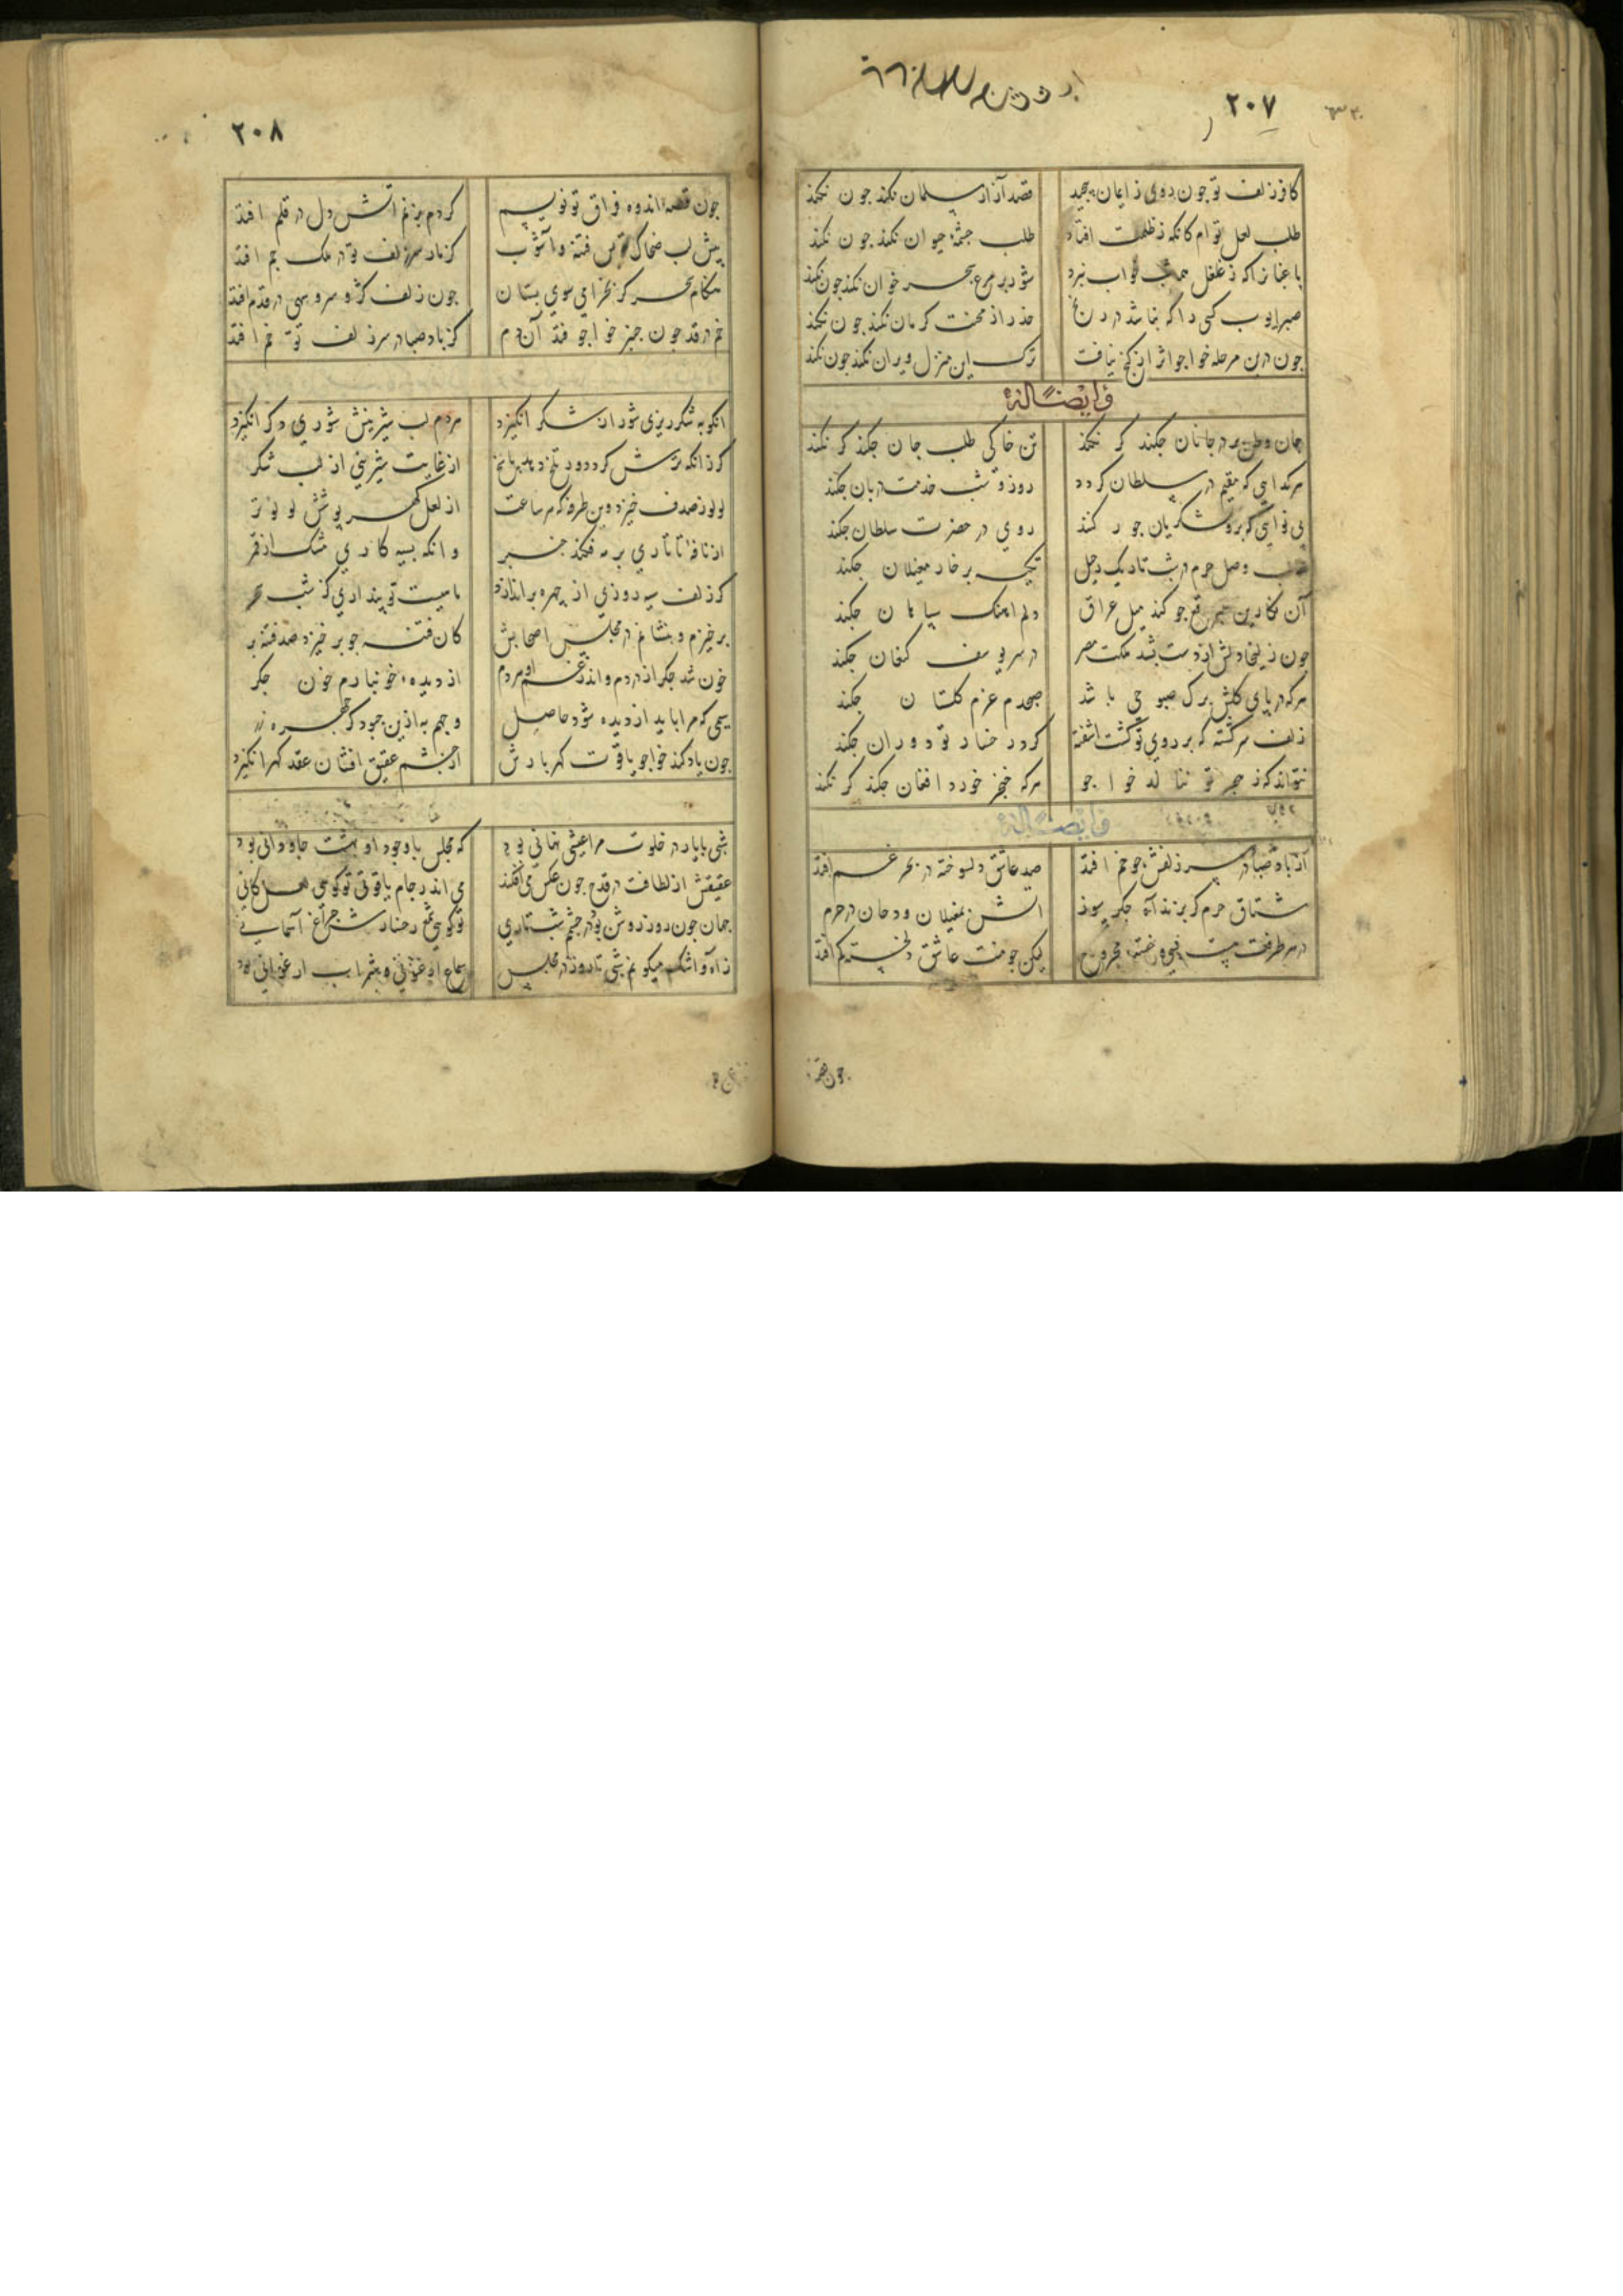 ۲۰۷
کافر زلف تو جون روی ز ایمان بیجد قصد آزار مسلمان نکند جون نکند
طلب لعل توام کانکه ز ظلمت افتاد طلب جشمهٔ حیوان نکند جون نکند
باغبانرا که ز غلغل همه شب خواب نبرد شور بر مرغ سحر خوان نکند جون نکند
صبر ایوب کسی را که نباشد در رنج حذر از محنت کرمان نکند جون نکند
جون درین مرحله خواجو اثر از کنج نیافت ترک این منزل ویران نکند جون نکند
وایضاً له
جان وطن بر در جانان جکند کر نکند تن خاکی طلب جان جکند کر نکند
هر کدایی که مقیم در سلطان کردد روز و شب خدمت دربان جکند
بی نوایی که برو لشکریان جور کنند روی در حضرت سلطان جکند
طلب وصل حرم در شب تاریک رحیل تکیه بر خار مغیلان جکند
آن نکارین جو کند میل عراق دلم اهنک سپاهان جکند
جون زلیخا دلش از دست بشد ملکت مصر در سر یوسف کنعان جکند
هر که در پای کلش برک صبوحی باشد صبحدم عزم کلستان جکند
زلف سرکشته که بر روی تو کشت اشفته کرد رخسار تو دوران جکند
نتواند که ز هجر تو ننالد خواجو هر که خنجر خورد افغان جکند کر نکند
وایضاً له
از باد صبا در سر زلفش جو خم افتد صد عاشق دلسوخته در بحر غم افتد
مشتاق حرم کر بزند آه جکر سوز اتش بمغیلان و دخان در حرم
در هر طرفت هست خسته و مجروح لیکن جو منت عاشق دلخسته کم افتد
جون قصه
۲۰۸
جون قصهٔ اندوه فراق تو نویسم کر دم بزنم اتش دل در قلم افتد
پیش لب ضحاک تو بس فتنه و آشوب کز مار سر زلف تو در ملک جم افتد
هنکام سحر کر بخرامی سوی بستان جون زلف کژت سرو سهی در قدم افتد
خم در قد جون جنبر خواجو فتد آن دم کز باد صبا در سر زلف تو خم افتد
انکو به شکر ریزی شور از شکر انکیزد هر دم لب شیرینش شوری دکر انکیزد
کر زانکه ترش کردد ور تلخ دهد پاسخ از غایت شیرینی از لب شکر
لولو ز صدف خیزد وین طرفه که هر ساعت از لعل کهر پوش لولو تر
از نافهٔ تاتاری بر مه فکند جنبر وانکه بسیه کاری مشک اذفر
کر زلف سیه روزی از چهره براندازد ماهیست تو پنداری کز شب
برخیزم و بنشانم در مجلس اصحابش کان فتنه جو برخیزد صد فتنه بر
خون شد جکر از دردم واندر غم او هر دم از دیده خونبارم خون جکر
سیمی که مرا باید از دیده شود حاصل وجهم به ازین جبود کز چهره زر
جون یاد کند خواجو یاقوت کهربارش از جشم عقیق افشان عقد کهر انکیزد
شبی با یار در خلوت مرا عیشی نهانی بود که مجلس با وجود او بهشت جاودانی بود
عقیقش از لطافت در قدح جون عکس می افکند می اندر جام یاقوتی تو کویی لعل کانی
جهان جون روز روشن بود در جشم شب تاری تو کویی شمع رخسارش جراغ آسمانی
ز آه و اشک میکونم شبی تا روز در مجلس سماع ارغنونی و شراب ارغوانی بود